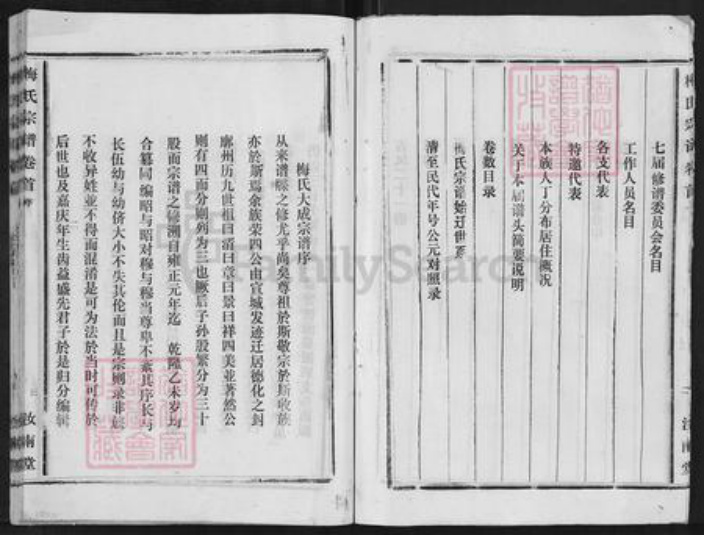 梅氏宗谱卷首
七届修谱委员会名目
工作人员名目
各支代表
特邀代表
本族人丁分布居住概况
关于本届谱头简要说明
卷数目录
梅氏宗谱始迁世系
清至民代年号公元对照录
汝南堂
梅氏宗谱卷首 序
梅氏大成宗谱序
从来谱牒之修尤乎尚矣尊祖於斯敬宗於斯收族
亦於斯焉余族荣四公由宣城发迹迁居德化之封
廓州历九世祖曰清曰章曰景曰祥四美並著然公
则有四而分则列为三也厥后子孙殷繁分为三十
股而宗谱之修溯自雍正元年迄 乾隆乙未岁均
合纂同编昭与昭对穆与穆当尊卑不紊其序长与
长伍幼与幼侪大小不失其伦而且是宗则录非族
不收异姓並不得而混淆是可为法於当时可传於
后世也及嘉庆年生齿益盛先君子於是归分编辑
汝南堂
FamilySearch